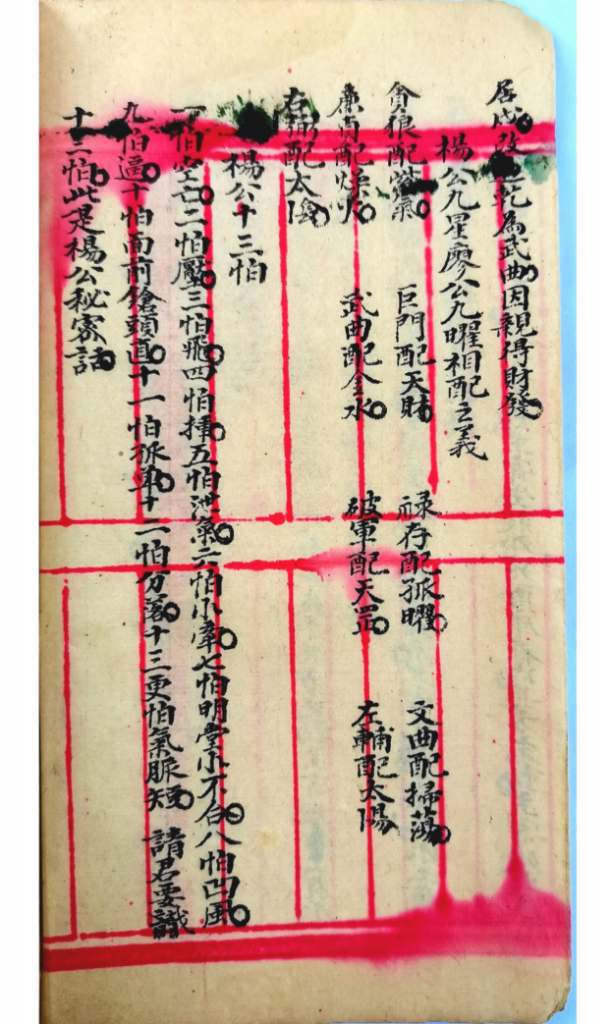 居戌改乾為武曲因親得財發
楊公九星廖公九曜相配之義
貪狼配紫氣 巨門配天財 祿存配孤曜 文曲配掃蕩
廉貞配燥火 武曲配金水 破軍配天罡 左輔配太陽
右弼配太陰
楊公十三怕
一怕空亡二怕壓三怕飛四怕 五怕洩氣六怕小 七怕明堂小不 八怕凹風
九怕逼十怕面前鎗頭直十一怕孤單十二怕分落十三更怕氣脈短 請君要識
十三怕此是楊公秘密話